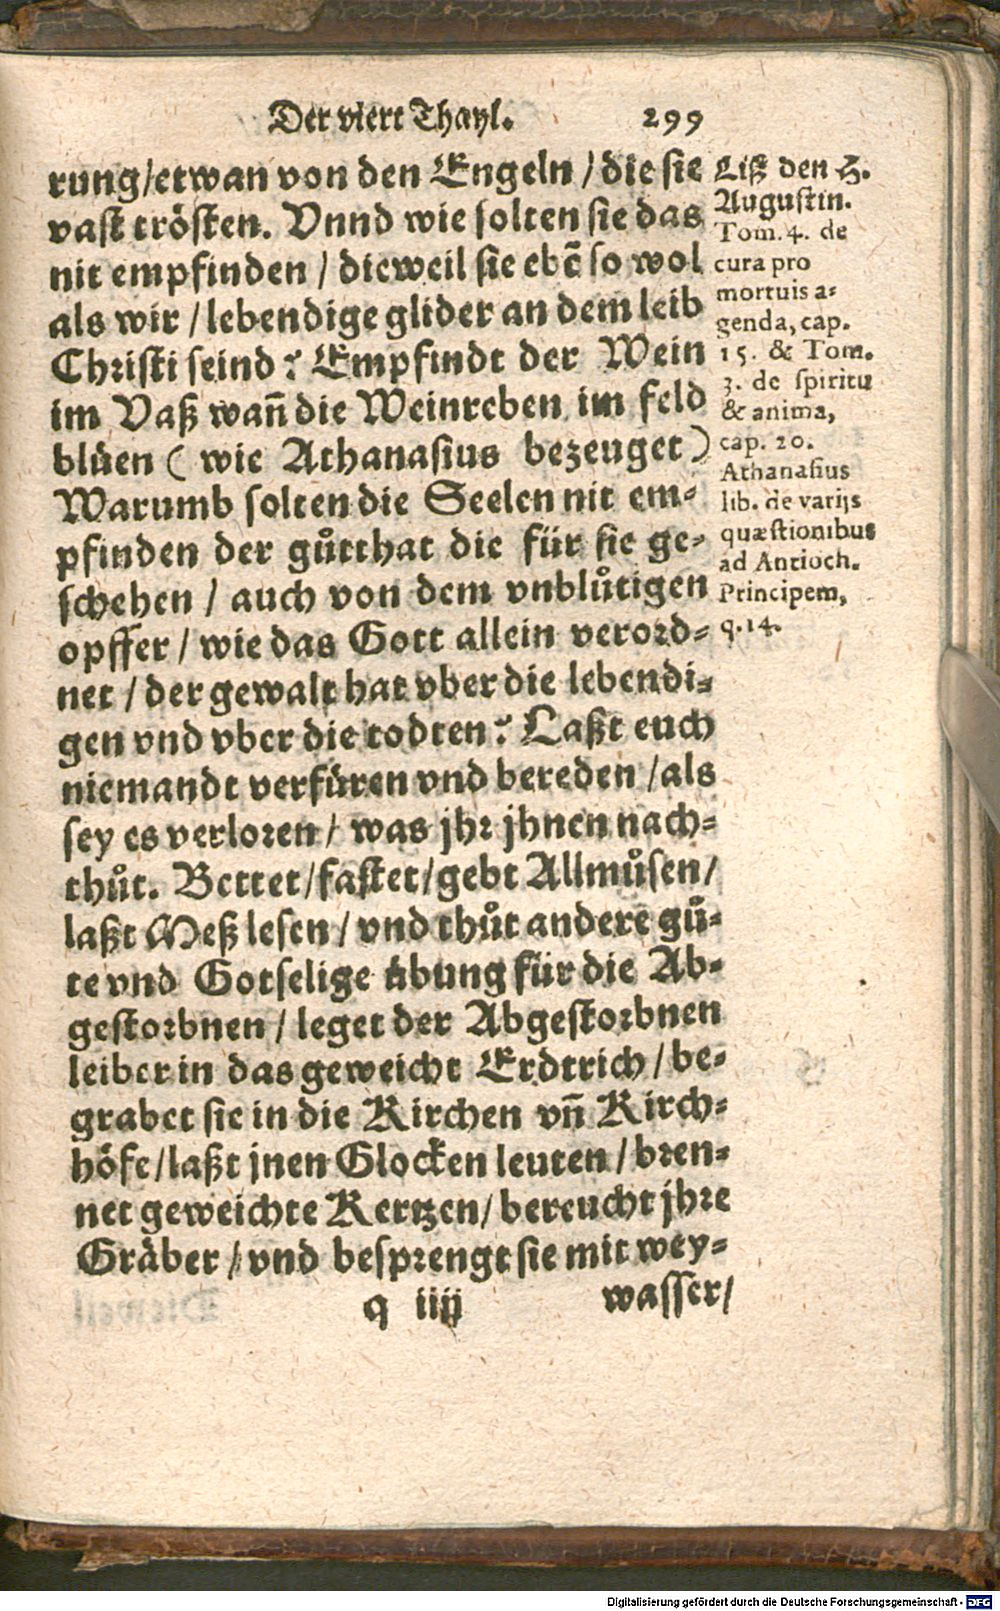 Der viert Thayl. 299
rung/etwan von den Engeln / die sie
vast trösten. Vnnd wie solten sie das
nit empfinden / dieweil sie ebē so wol
als wir / lebendige glider an dem leib
Christi seind? Empfindt der Wein
im Vaß wañ die Weinreben im feld
blüen ( wie Athanasius bezeuget )
Warumb solten die Seelen nit em-
pfinden der gůtthat die für sie ge-
schehen / auch von dem vnblůtigen
opffer / wie das Gott allein verord-
net / der gewalt hat vber die lebendi-
gen vnd vber die todten? Laßt euch
niemandt verfüren vnd bereden /als
sey es verloren / was jhr jhnen nach-
thůt. Bettet/fastet/gebt Allmůsen/
laßt Meß lesen / vnd thůt andere gů-
te vnd Gotselige übung für die Ab-
gestorbnen / leget der Abgestorbnen
leiber in das geweicht Erdtrich / be-
grabet sie in die Kirchen vñ Kirch-
höfe/laßt jnen Glocken leuten / bren-
net geweichte Kertzen/ bereucht jhre
Gräber / vnd besprengt sie mit wey-
q iiij wasser/
Liß den H.
Augustin.
Tom. 4. de
cura pro
mortuis a-
genda, cap.
15. & Tom.
3. de spiritu
& anima,
cap. 20.
Athanasius
lib. de varijs
quæstionibus
ad Antioch.
Principem,
q. 14.
Digitalisierung gefördert durch die Deutsche Forschungsgemeinschaft - DFG